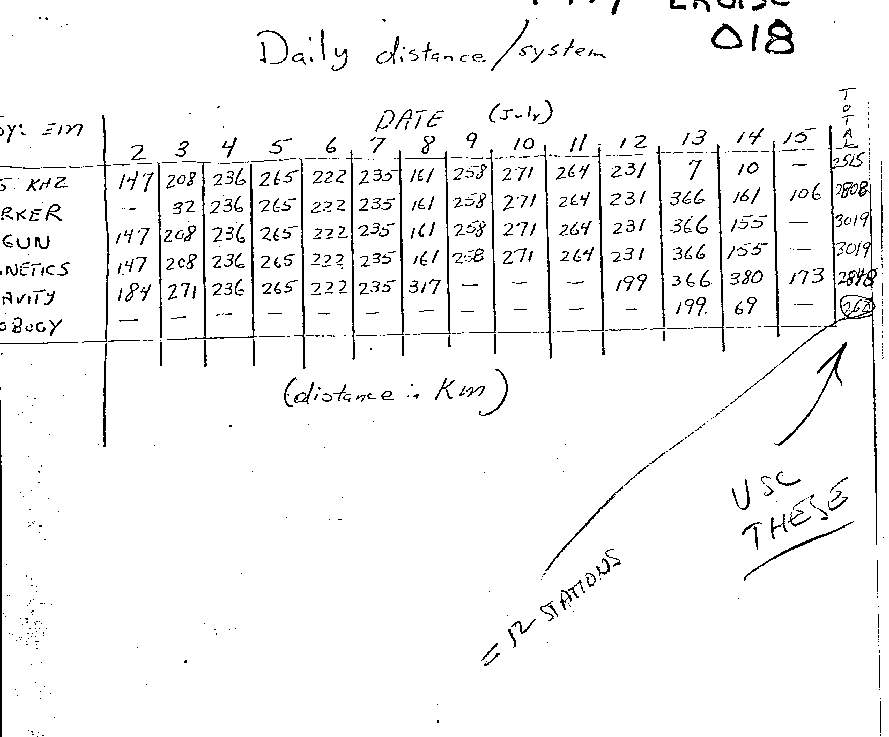 CRUISE
018
Daily distance/system
DATE (July)
TOTAL
2 3 4 5 6 7 8 9 10 11 12 13 14 15
KHZ 147 208 236 265 222 235 161 258 271 264 231 7 10 — 2515
RKER — 32 236 265 222 235 161 258 271 264 231 366 161 106 2808
GUN 147 208 236 265 222 235 161 258 271 264 231 366 155 — 3019
NETICS 147 208 236 265 222 235 161 258 271 264 231 366 155 — 3019
AVITY 184 271 236 265 222 235 317 — — — 199 366 380 173
OBUOY — — — — — — — — — — — 199. 69 —
(distance in Km)
USE
THESE
= 12 STATIONS